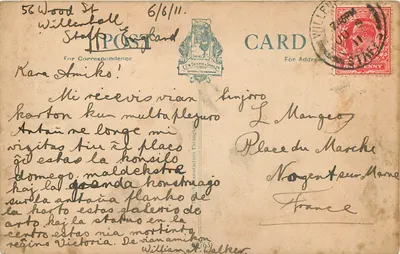 56 Wood St
Willenhall
Staffs England
6/6/11.
POST CARD
For Correspondence
For Address
Kara Amiko!
Mi recevis vian
karton kun multa plezuro
Antaŭ ne longe mi
vizitas tiu ĉi placo
ĝi estas la konsilo
domego, maldekstre
kaj la granda konstruaĝo
sur la antaŭa flanko de
la karto estas galerio da
arto kaj la statuo en la
centro estas nia mortinta
reĝino Victoria. De via amiko
William H. Walker.
Sinjoro
L Mangeos
Place du Marche
Nogent sur Marne
France